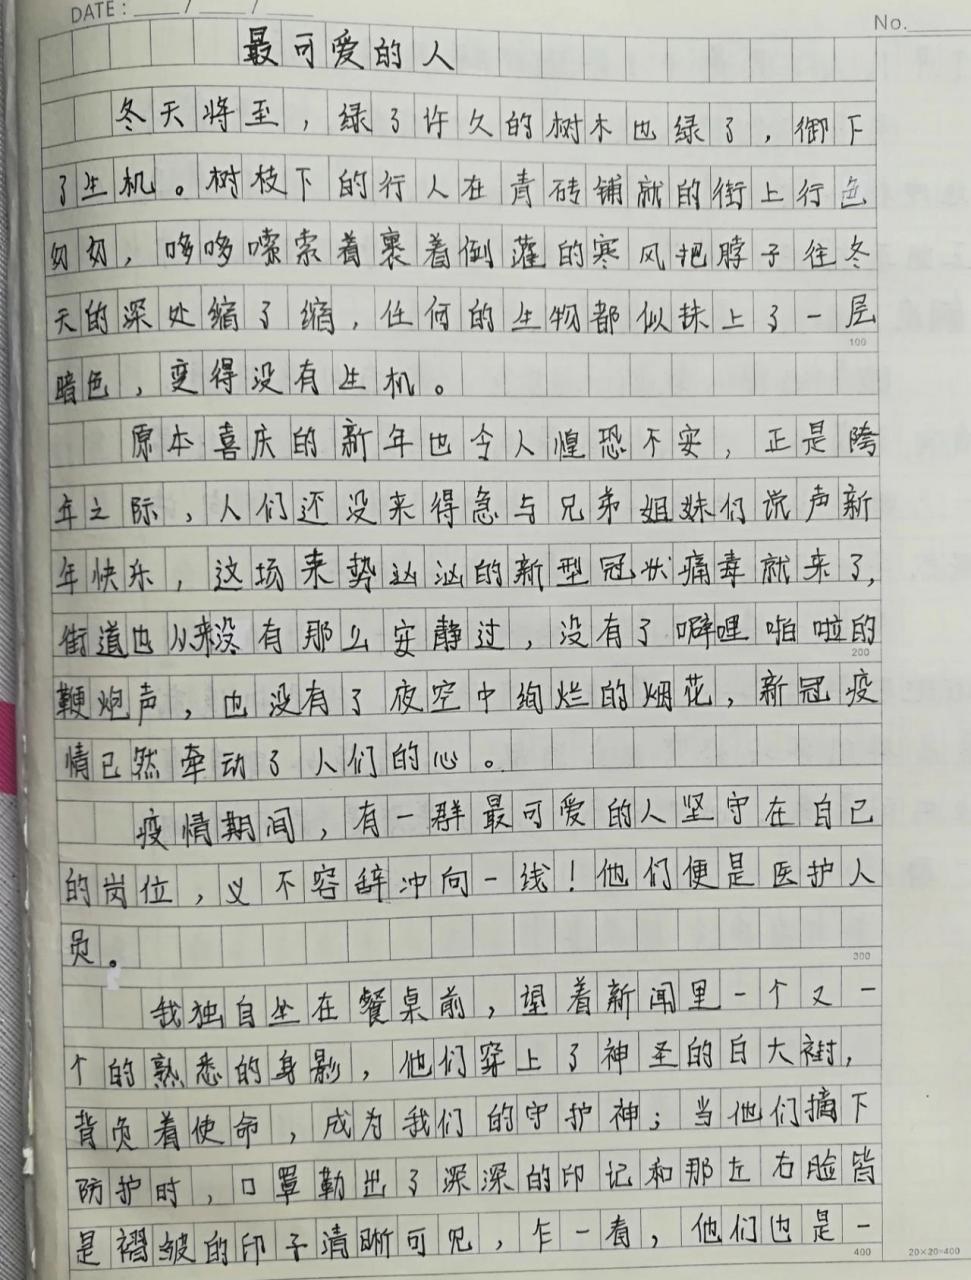 DATE: / /
No.
最可爱的人
冬天将至，绿了许久的树木也绿了，御下
了生机。树枝下的行人在青砖铺就的街上行色
匆匆，哆哆嗦索着裹着倒灌的寒风把脖子往冬
天的深处缩了缩，任何的生物都似抹上了一层
100
暗色，变得没有生机。
原本喜庆的新年也令人惶恐不安，正是跨
年之际，人们还没来得急与兄弟姐妹们说声新
年快乐，这场来势汹汹的新型冠状病毒就来了，
街道也从来没有那么安静过，没有了噼哩啪啦的
200
鞭炮声，也没有了夜空中绚烂的烟花，新冠疫
情已然牵动了人们的心。
疫情期间，有一群最可爱的人坚守在自己
的岗位，义不容辞冲向一线！他们便是医护人
员。
300
我独自坐在餐桌前，望着新闻里一个又一
个的熟悉的身影，他们穿上了神圣的白大褂，
背负着使命，成为我们的守护神；当他们摘下
防护时，口罩勒出了深深的印记和那左右脸皆
是褶皱的印子清晰可见，乍一看，他们也是一
400
20×20=400